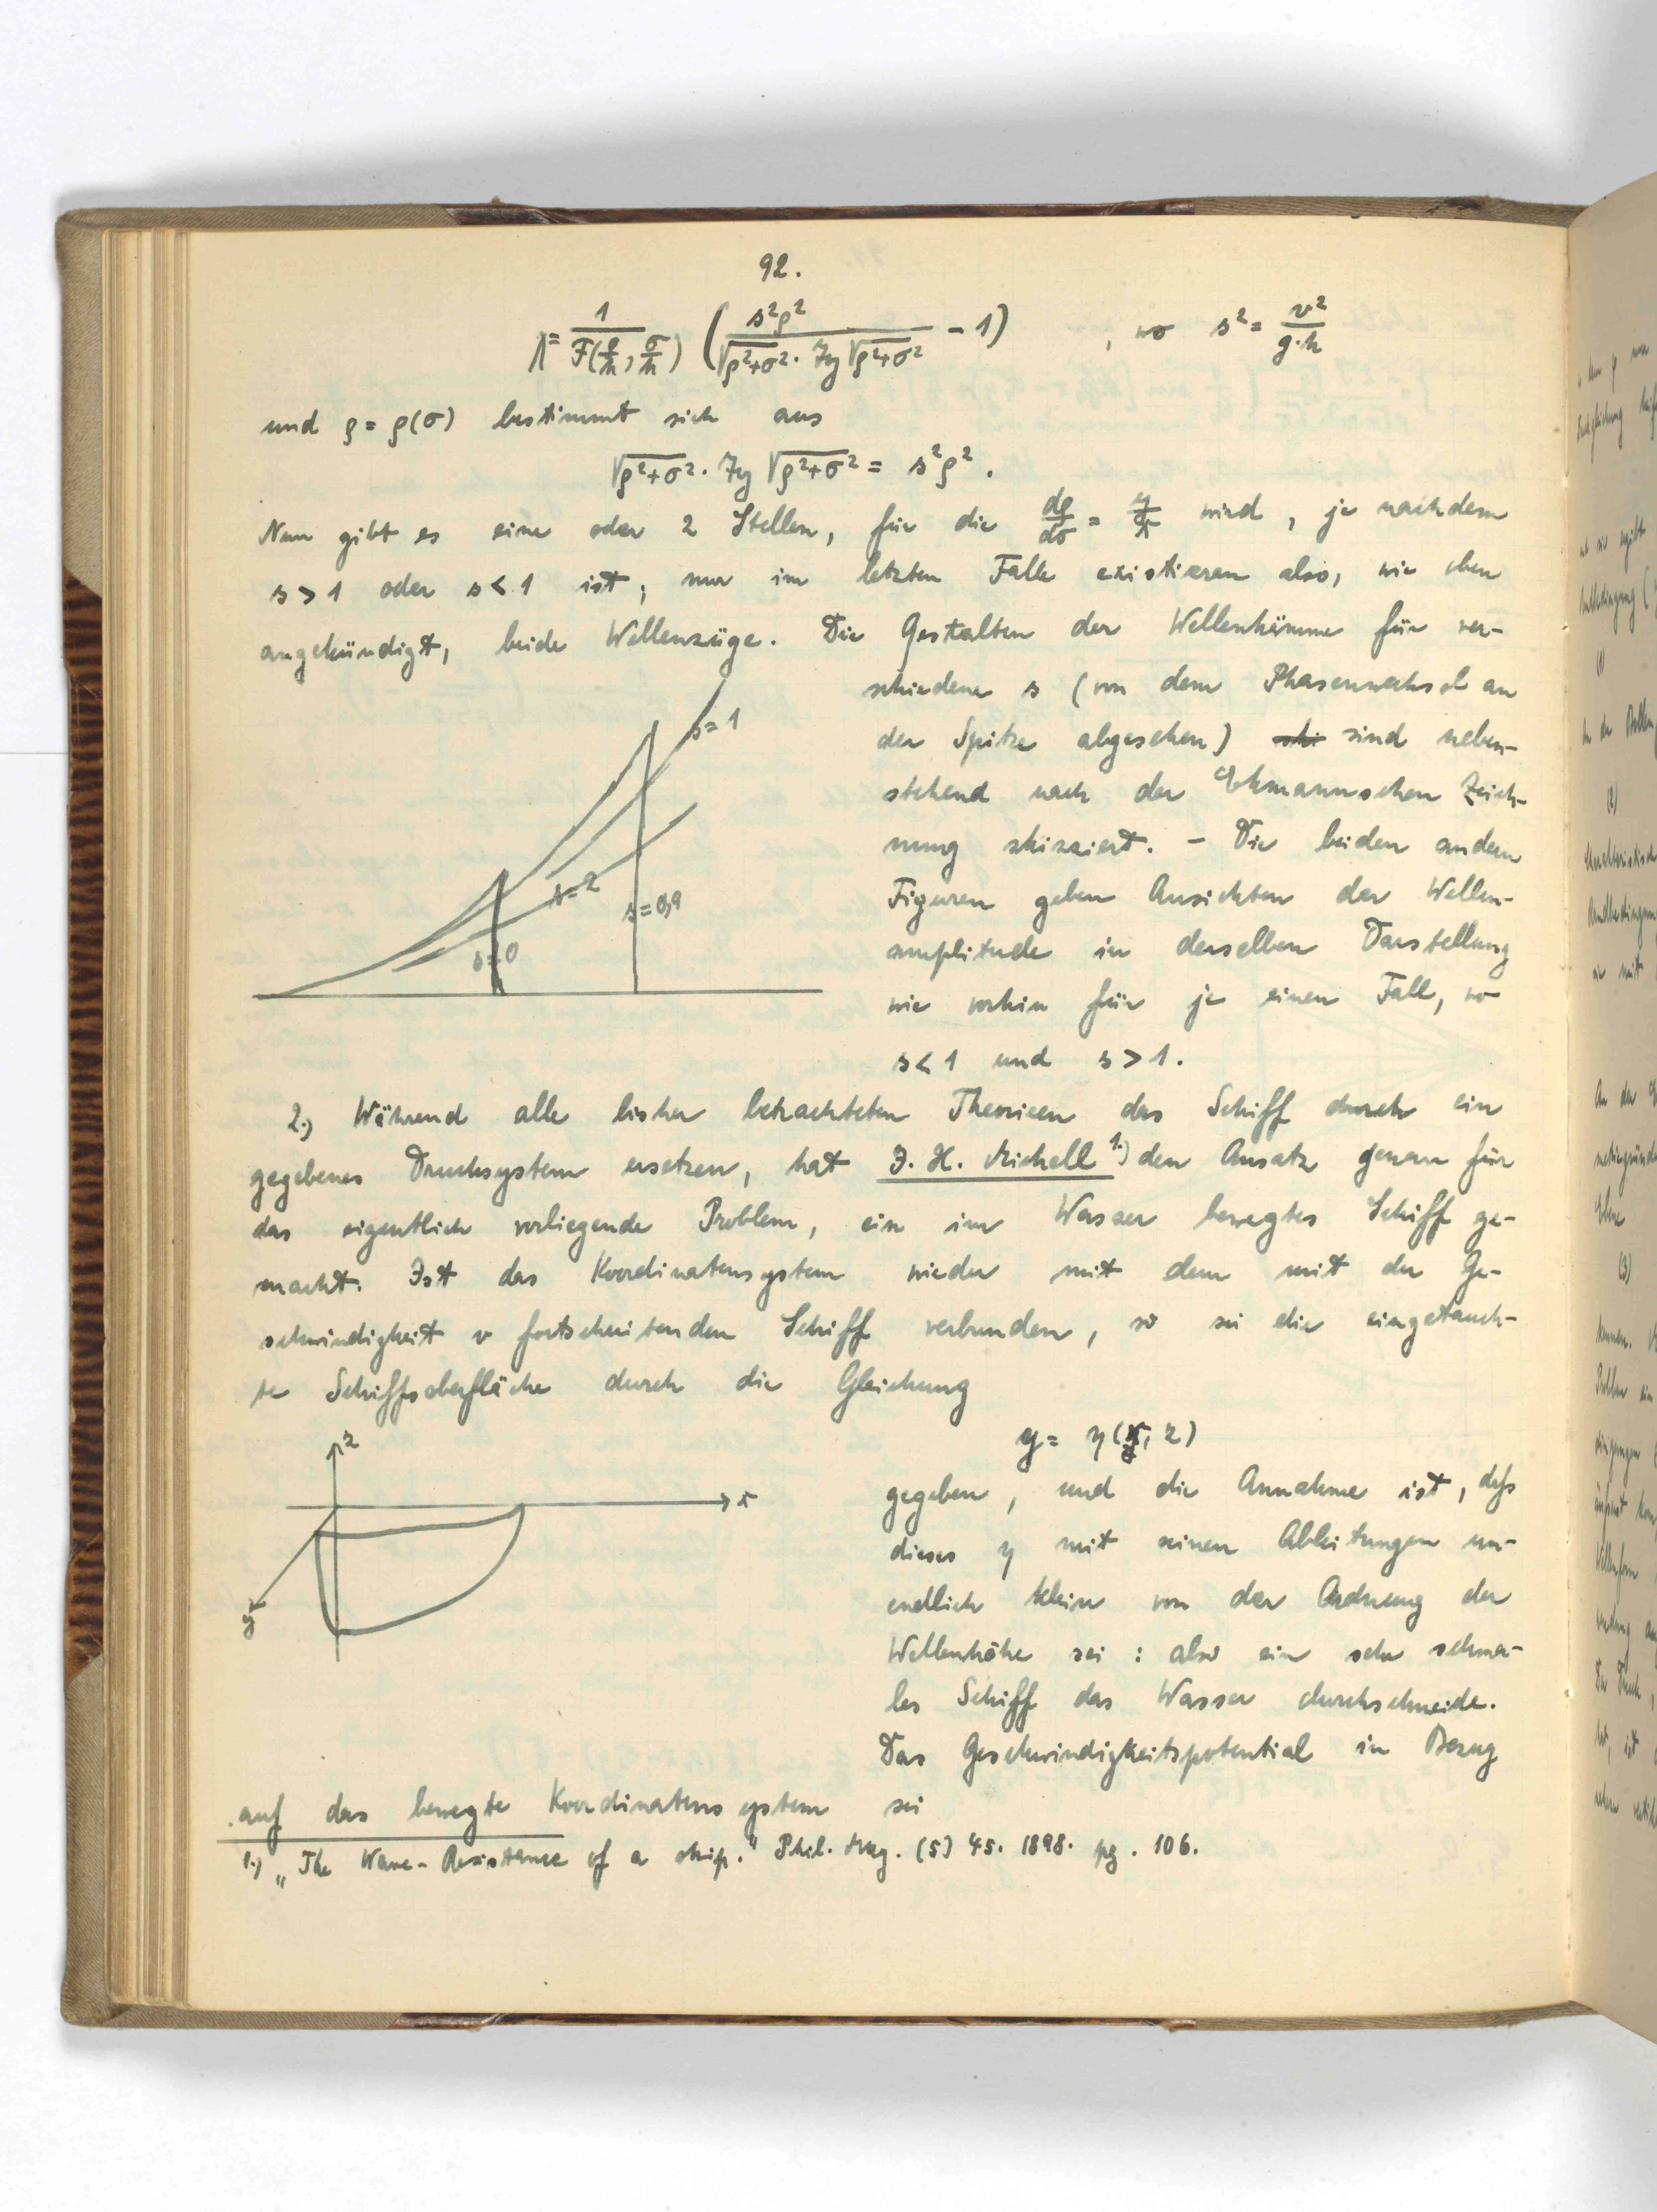 92.
Λ = 1/F(ρ/h, σ/h) ( s²ρ² / √ρ²+σ² · Tg √ρ²+σ² − 1 ) , wo s² = v²/g·h
und ρ = ρ(σ) bestimmt sich aus
√ρ²+σ² · Tg √ρ²+σ² = s²ρ².
Nun gibt es eine oder 2 Stellen, für die dρ/dσ = y/x wird, je nachdem
s > 1 oder s < 1 ist; nur im letzten Falle existieren also, wie oben
angekündigt, beide Wellenzüge. Die Gestalten der Wellenkämme für ver-
schiedene s (von dem Phasenwechsel an
der Spitze abgesehen) sind neben-
stehend nach der Ekmannschen Zeich-
nung skizziert. – Die beiden andern
Figuren geben Ansichten der Wellen-
amplitude in derselben Darstellung
wie vorhin für je einen Fall, wo
s < 1 und s > 1.
s=1
s=2
s=0,9
s=0
2.) Während alle bisher betrachteten Theorieen das Schiff durch ein
gegebenes Drucksystem ersetzen, hat J. H. Michell 1.) den Ansatz genau für
das eigentlich vorliegende Problem, ein im Wasser bewegtes Schiff ge-
macht. Ist das Koordinatensystem wieder mit dem mit der Ge-
schwindigkeit v fortschreitenden Schiff verbunden, so sei die eingetauch-
te Schiffsoberfläche durch die Gleichung
y = η(x, z)
z
x
y
gegeben, und die Annahme ist, daſs
dieses η mit seinen Ableitungen un-
endlich klein von der Ordnung der
Wellenhöhe sei : also ein sehr schma-
les Schiff das Wasser durchschneide.
Das Geschwindigkeitspotential in Bezug
auf das bewegte Koordinatensystem sei
1.) „The Wave-Resistance of a ship." Phil. Mag. (5) 45. 1898. pg. 106.